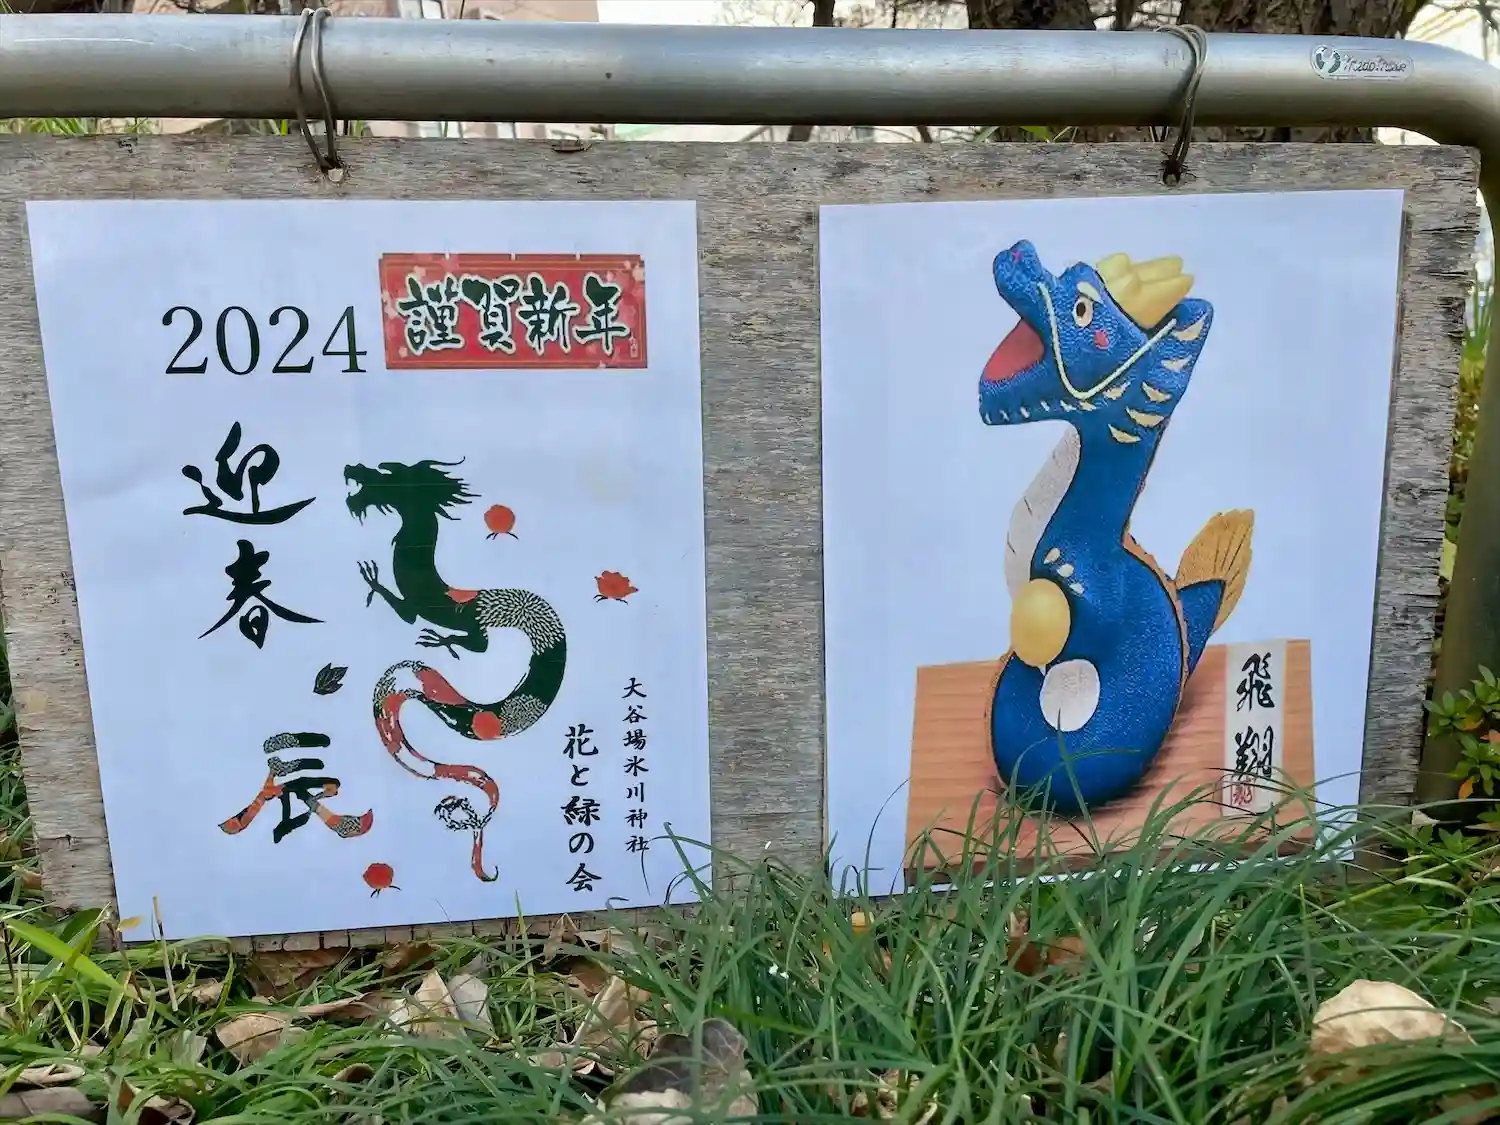 2024
謹賀新年
迎春
辰
大谷場氷川神社
花と緑の会
飛翔